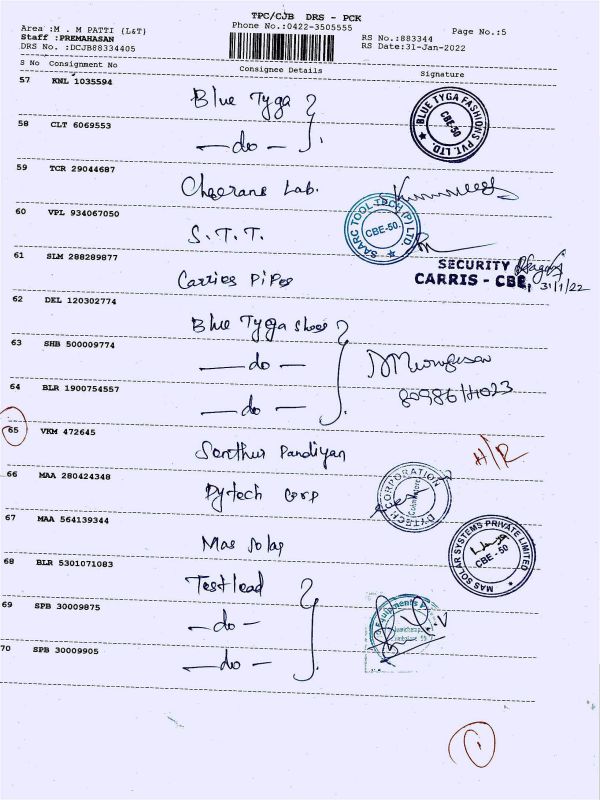 TPC/CJB DRS - PCK
Area :M . M PATTI (L&T)
Phone No.:0422-3505555
Page No.:5
Staff :PREMAHASAN
RS No.:883344
DRS No. :DCJB88334405
RS Date:31-Jan-2022
S No Consignment No Consignee Details Signature
57 KNL 1035594 Blue Tyga
BLUE TYGA FASHIONS PVT. LTD. CBE-50
58 CLT 6069553 — do —
59 TCR 29044687 Cheerans Lab.
60 VPL 934067050 S.T.T.
SAARC TOOL TECH (P) LTD. CBE-50.
61 SLM 288289877 Carries Pipes
SECURITY
CARRIS - CBE, 31/1/22
62 DEL 120302774 Blue Tyga shoes
63 SHB 500009774 — do —
64 BLR 1900754557 — do —
65 VKM 472645 Senthur Pandiyan
H/R
66 MAA 280424348 Dytech Corp
DYTECH CORPORATION Coimbatore
67 MAA 564139344 Mas Solar
MAS SOLAR SYSTEMS PRIVATE LIMITED CBE - 50
68 BLR 5301071083 Testlead
69 SPB 30009875 — do —
70 SPB 30009905 — do —
1